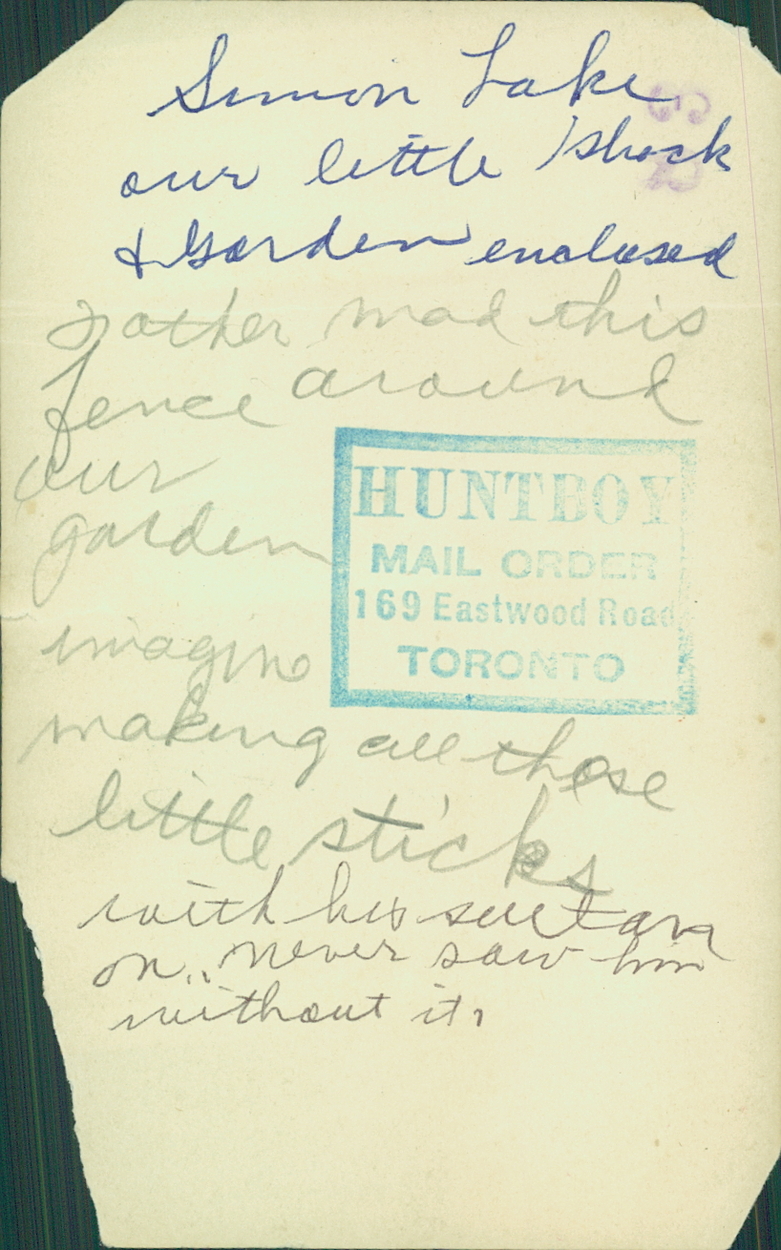 Simon Lake
our little shack
& Garden enclosed
Father mad this
fence around
our
garden
HUNTBOY
MAIL ORDER
169 Eastwood Road
TORONTO
imagine
making all those
little sticks
with his suit on
on.. never saw him
without it.